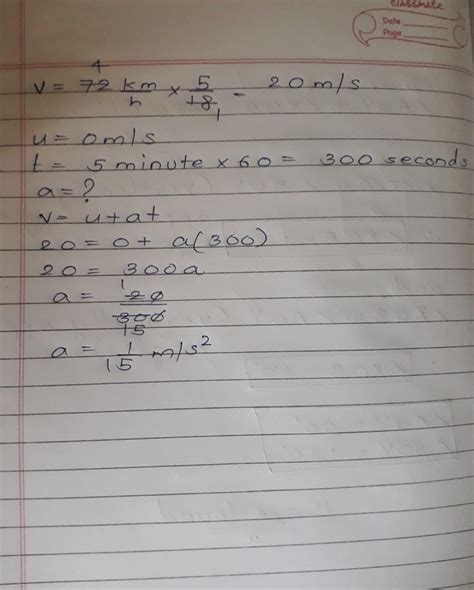 classmate
Date
Page
4
v = 72 km/h × 5/18 1 = 20 m/s
u = 0 m/s
t = 5 minute × 60 = 300 seconds
a = ?
v = u + at
20 = 0 + a(300)
20 = 300a
a = 1 20/300 15
a = 1/15 m/s²